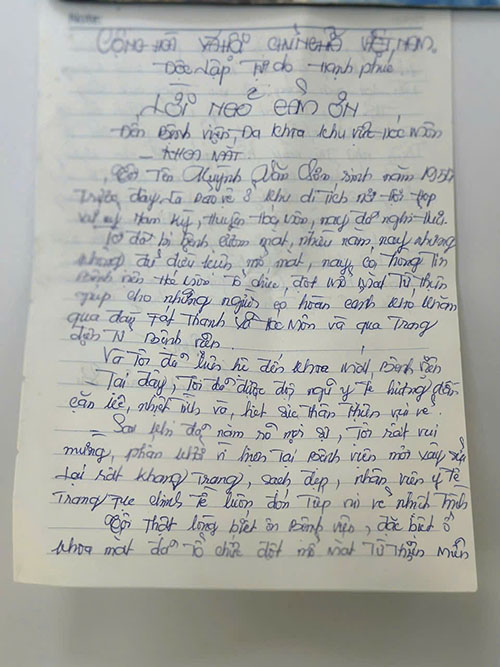 CỘNG HOÀ XÃ HỘI CHỦ NGHĨA VIỆT NAM.
Độc lập Tự do Hạnh phúc
LỜI NGỎ CẢM ƠN
Đến Bệnh viện Đa khoa khu vực Hóc Môn
- KHOA MẮT.
Tôi Tên Huỳnh Văn sinh năm
Trước đây là bảo vệ ở khu di tích
Nam Kỳ, huyện Hóc Môn, nay đã nghỉ
Tôi đã bị bệnh mắt, nhiều năm nay nhưng
không đủ điều kiện mổ mắt, nay có thông tin
Bệnh viện Hóc Môn Tổ chức, đợt mổ Mắt Từ thiện
giúp cho những người có hoàn cảnh khó khăn
qua đài Phát Thanh Hóc Môn và qua Trang
điện Tử Bệnh viện.
Và Tôi đã liên hệ đến khoa Mắt, Bệnh viện
- Tại đây, Tôi đã được đội ngũ y tế hướng dẫn
nhiệt tình và, hết sức thân thiện vui vẻ.
Sau khi đã nắm rõ mọi sự, Tôi rất vui
mừng, phấn khởi vì hiện Tại Bệnh viện mới xây
lại rất khang Trang, sạch đẹp, nhân viên y Tế
Trang phục chỉnh Tề luôn đón Tiếp vui vẻ nhiệt Tình
Tôi Thật lòng biết ơn Bệnh viện, đặc biệt ở
khoa mắt đã Tổ chức đợt mổ Mắt Từ Thiện Miễn